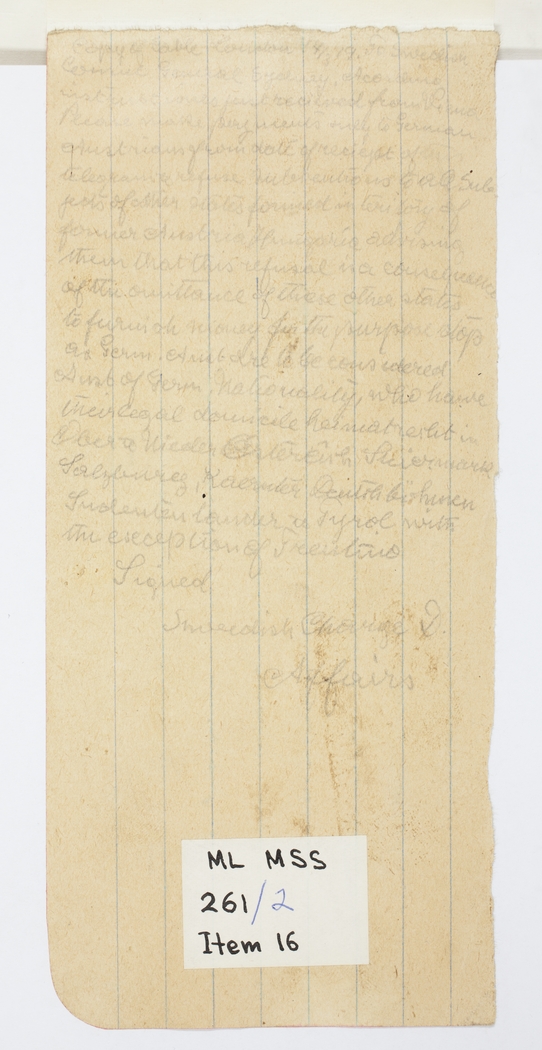 Copy Cable London
Consul General Sydney
received from
Please make payments only to German
Austrians from date of receipt of
telegram & refuse subventions to all Sub
jects of other states formed in teritory of
former Austria Hungaria advising
them that this refusal is a consequence
of the omittance of those other states
to furnish money for the purpose stop
as Germ. Aust are to be considered
Aust of Germ. Nationality, who have
their legal domicile heimatrecht in
Ober & Nieder Österreich, Steiermark
Salzburg, Kaernten Deutschbohmen
Sudetenlander & Tyrol with
the exception of Trentino
Signed
Swedish Chargé D
Affairs
ML MSS
261/2
Item 16